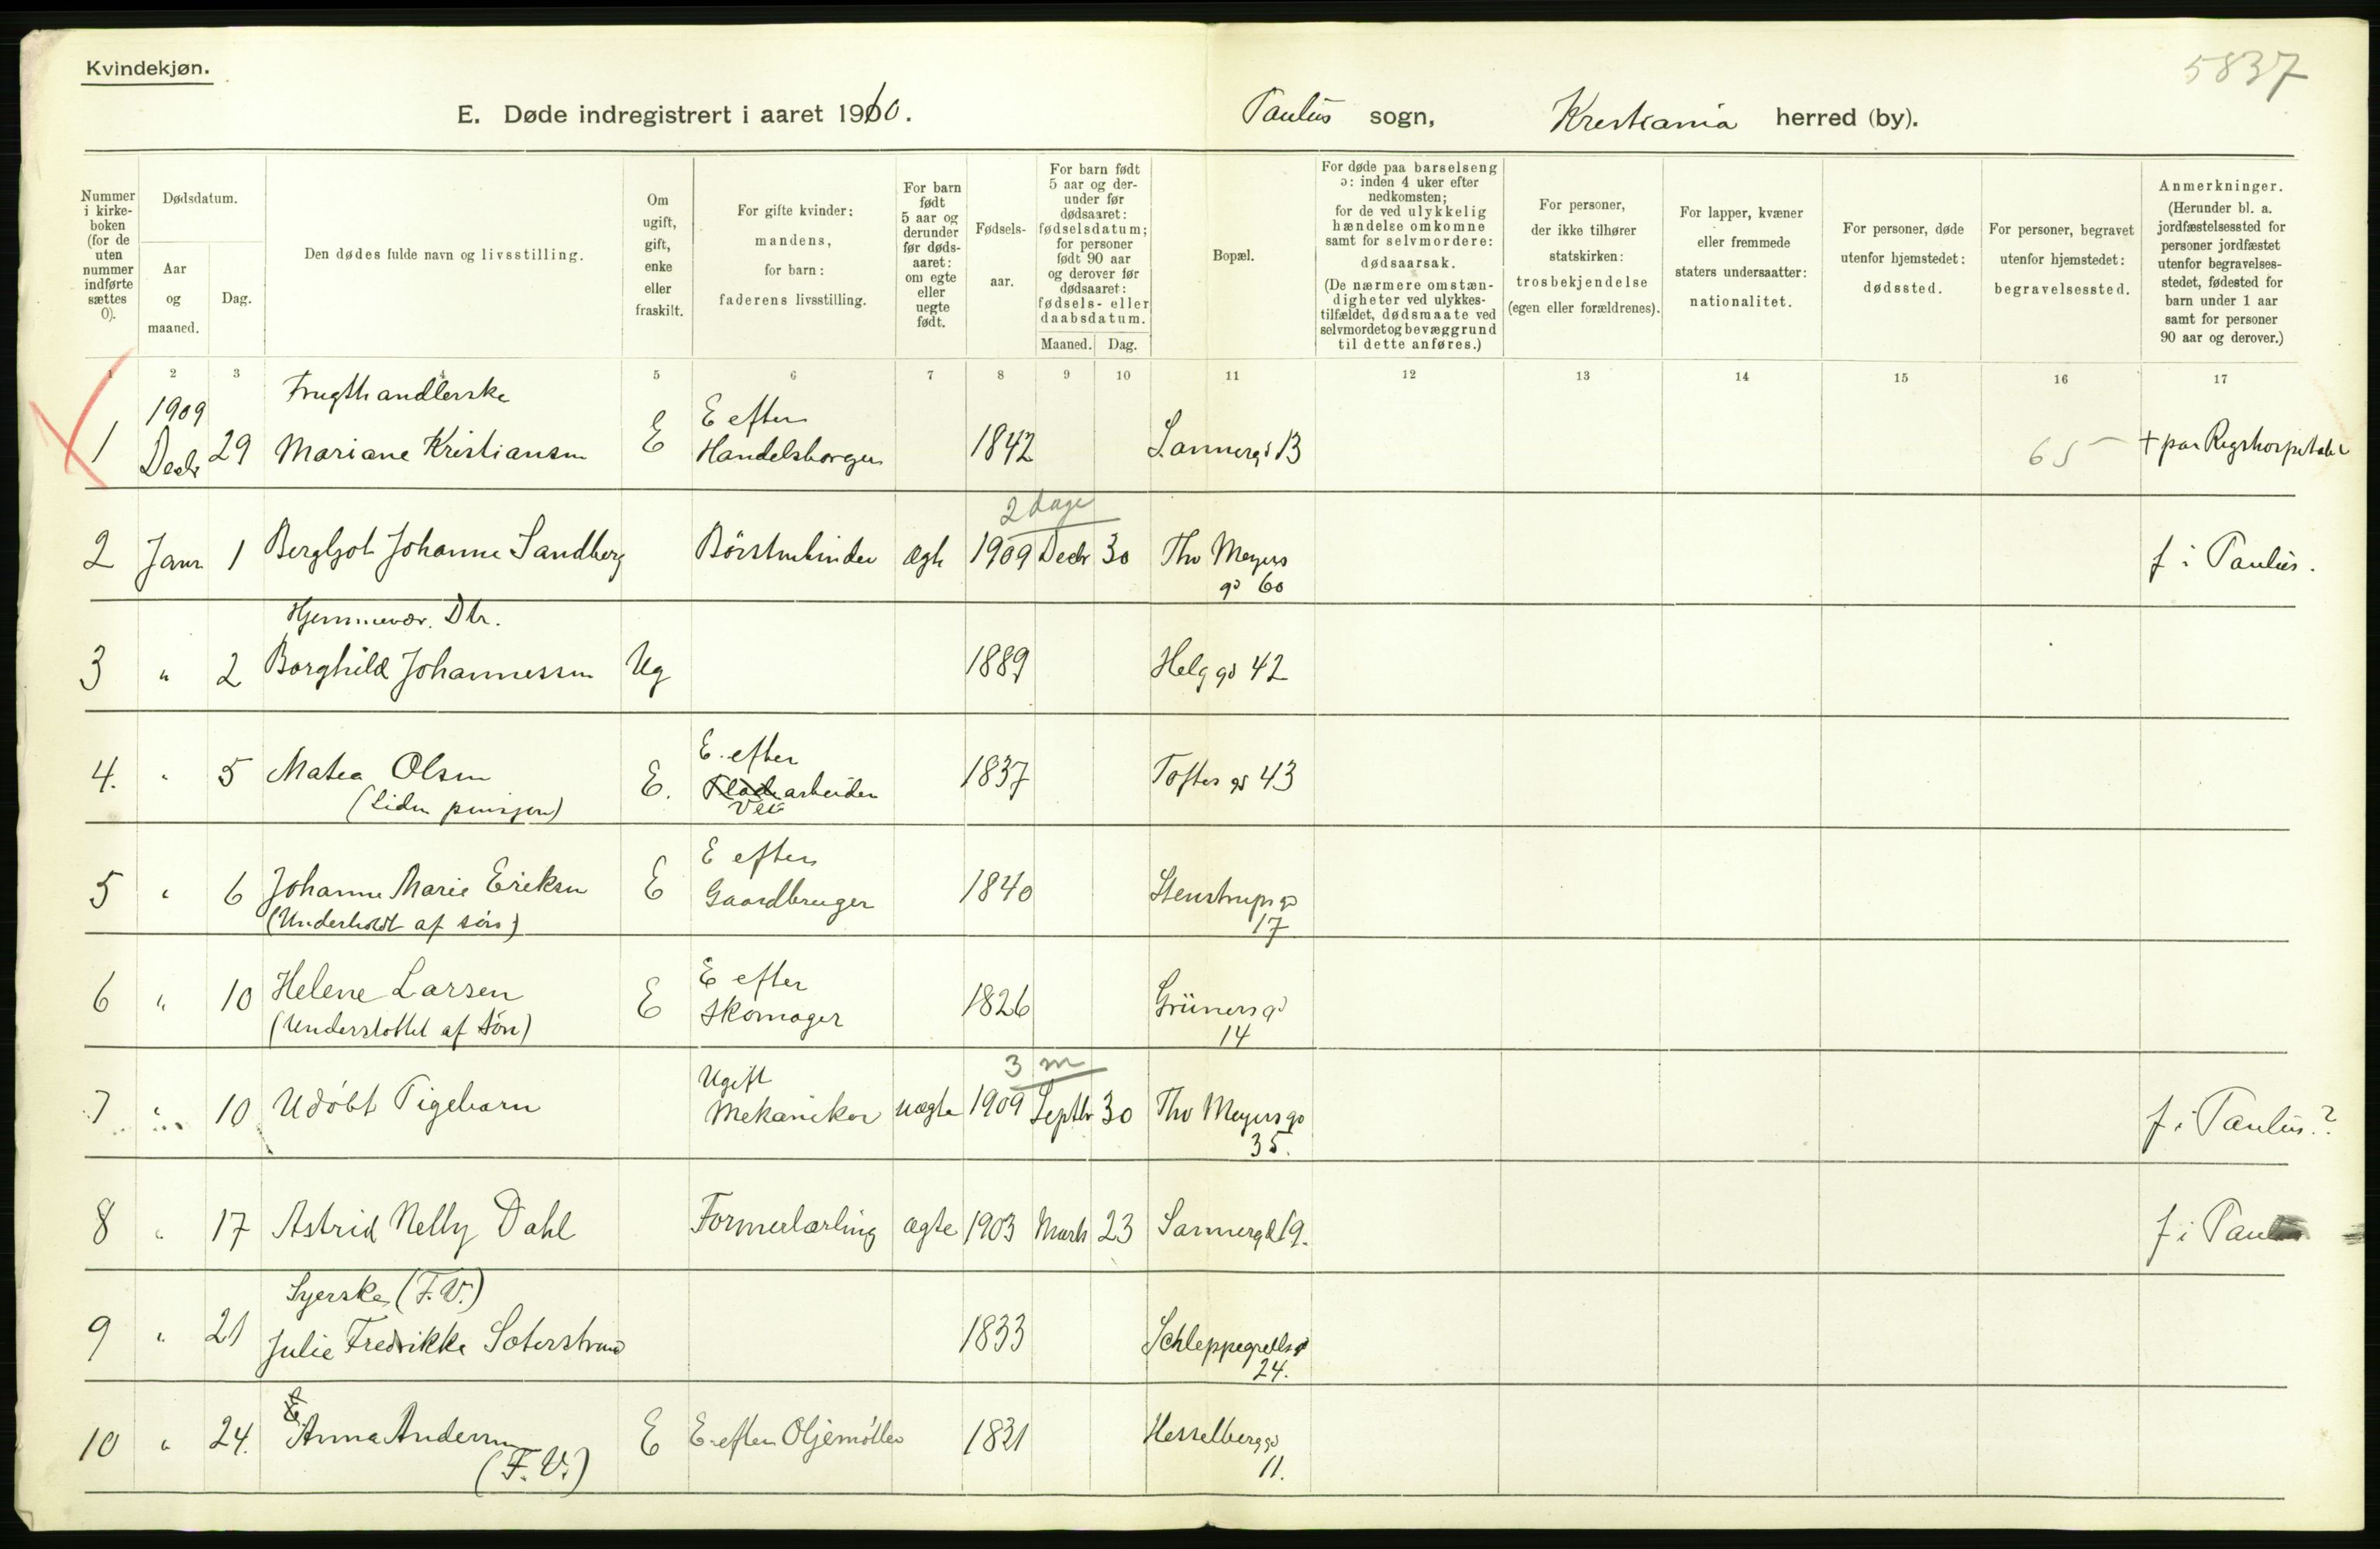 Kvindekjøn.
5837
E. Døde indregistrert i aaret 1910.
Paulus sogn, Kristiania herred (by).
Nummer i kirke-boken (for de uten nummer indførte sættes 0).
Dødsdatum.
Aar og maaned.
Dag.
Den dødes fulde navn og livsstilling.
Om ugift, gift, enke eller fraskilt.
For gifte kvinder: mandens, for barn: faderens livsstilling.
For barn født 5 aar og derunder før døds-aaret: om egte eller uegte født.
Fødsels-aar.
For barn født 5 aar og der-under før dødsaaret: fødselsdatum; for personer født 90 aar og derover før dødsaaret: fødsels- eller daabsdatum.
Maaned. Dag.
Bopæl.
For døde paa barselseng ɔ: inden 4 uker efter nedkomsten; for de ved ulykkelig hændelse omkomne samt for selvmordere: dødsaarsak. (De nærmere omstæn-digheter ved ulykkes-tilfældet, dødsmaate ved selvmord et og bevæggrund til dette anføres.)
For personer, der ikke tilhører statskirken: trosbekjendelse (egen eller forældrenes).
For lapper, kvæner eller fremmede staters undersaatter: nationalitet.
For personer, døde utenfor hjemstedet: dødssted.
For personer, begravet utenfor hjemstedet: begravelsessted.
Anmerkninger. (Herunder bl. a. jordfæstelsessted for personer jordfæstet utenfor begravelses-stedet, fødested for barn under 1 aar samt for personer 90 aar og derover.)
1 2 3 4 5 6 7 8 9 10 11 12 13 14 15 16 17
Frugthandlerske
1909 E efter
1 Decbr 29 Mariane Kristiansen E Handelsborger 1842 Sannergd 13 65 + paa Rigshospitalet
2 dage
2 Janr 1 Bergljot Johanne Sandberg Börstenbinder ægte 1909 Decbr 30 Thv Meyers gd 60 f i Paulus.
Hjemmevær. Dtr.
3 " 2 Borghild Johannessen Ug 1889 Helg gd 42
E. efter
4. " 5 Matea Olsen E. arbeider 1837 Toftes gd 43
(Liden pensjon) Vei
E efter
5 " 6 Johanne Marie Eriksen E Gaardbruger 1840 Stenstrups gd 17
(Underholdt af søn)
E efter
6 " 10 Helene Larsen E Skomager 1826 Grüners gd 14
(Understøttet af søn)
Ugift 3 m
7 " 10 Udöbt Pigebarn Mekaniker uægte 1909 Septbr 30 Thv Meyers gd 35. f i Paulus?
8 " 17 Astrid Nelly Dahl Formerlærling ægte 1903 Marts 23 Sannergd 19. f i Paulus
Syerske (F.V.)
9 " 21 Julie Fredrikke Soterstrand 1833 Schleppegrells gd 24.
10 " 24. Anna Andersen E E. efter Oljemöller 1821 Hesselberg gd 11.
(F.V.)